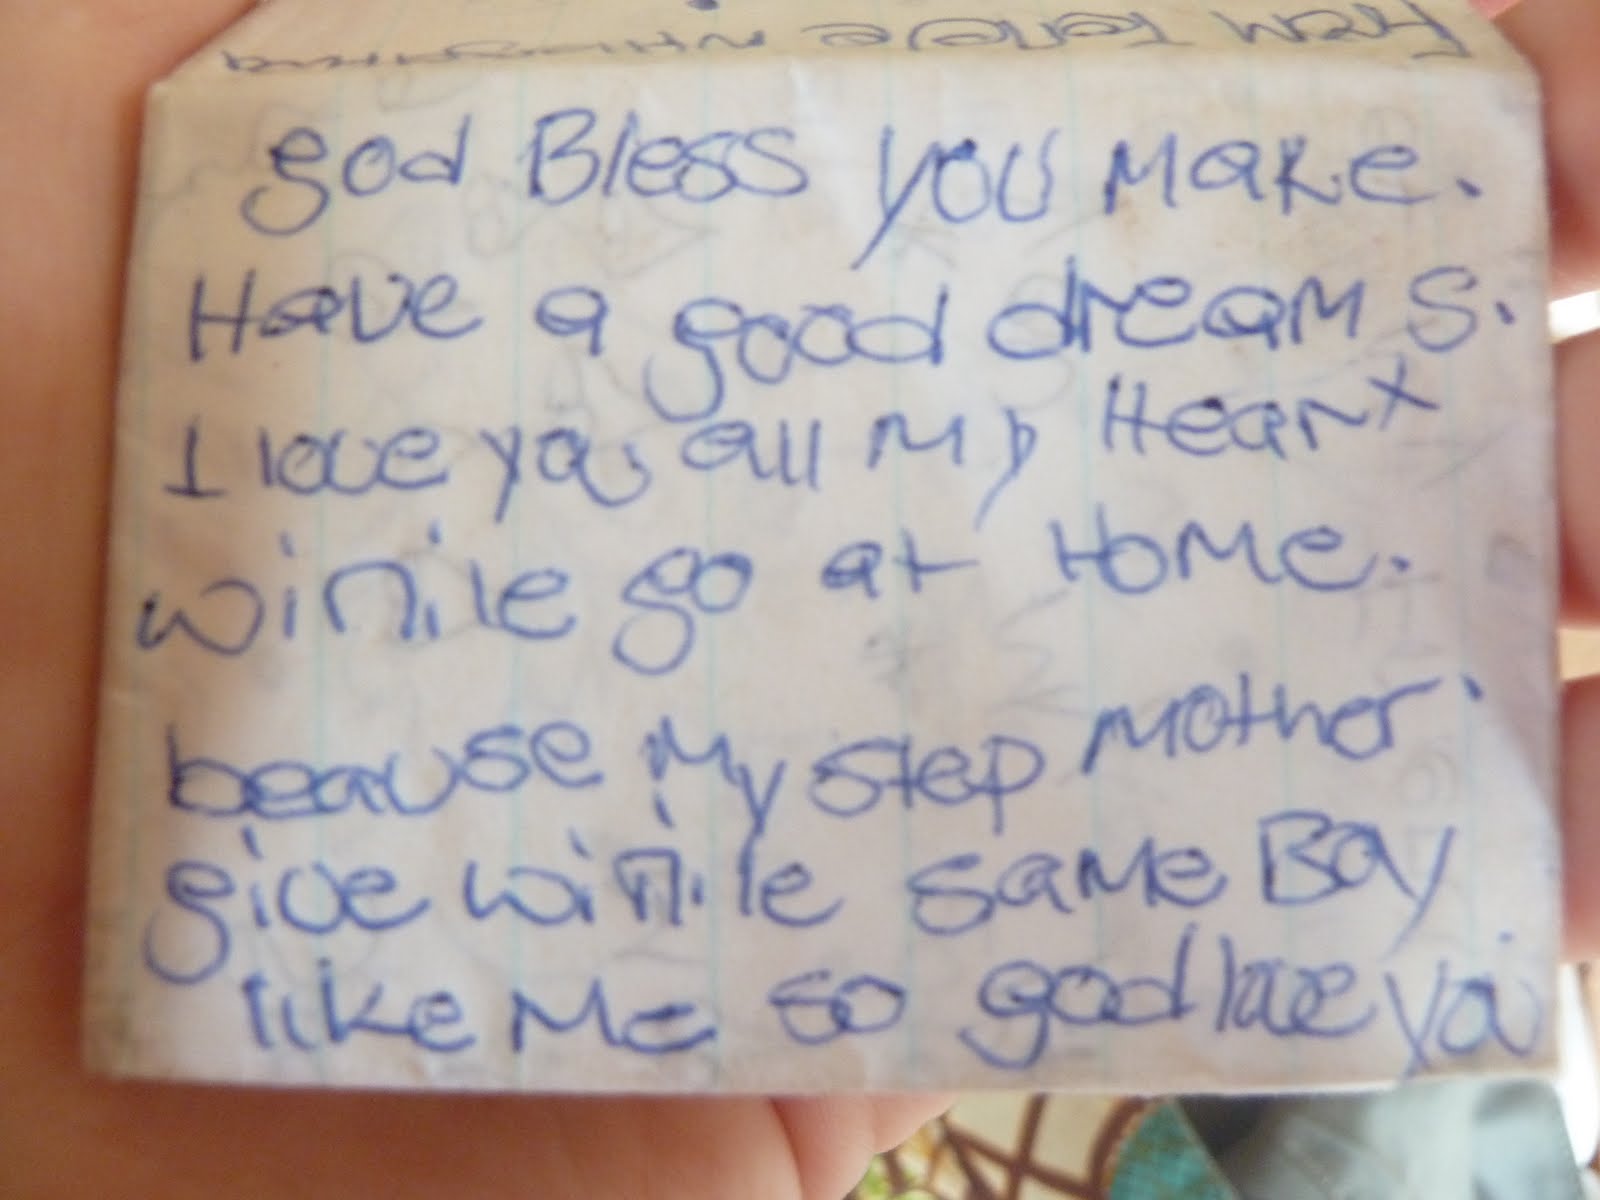 From
god Bless you Make.
Have a good dreams.
I love you all my Heart
winile go at Home.
beause My step Mother.
give winile same Boy
like Me so god love you